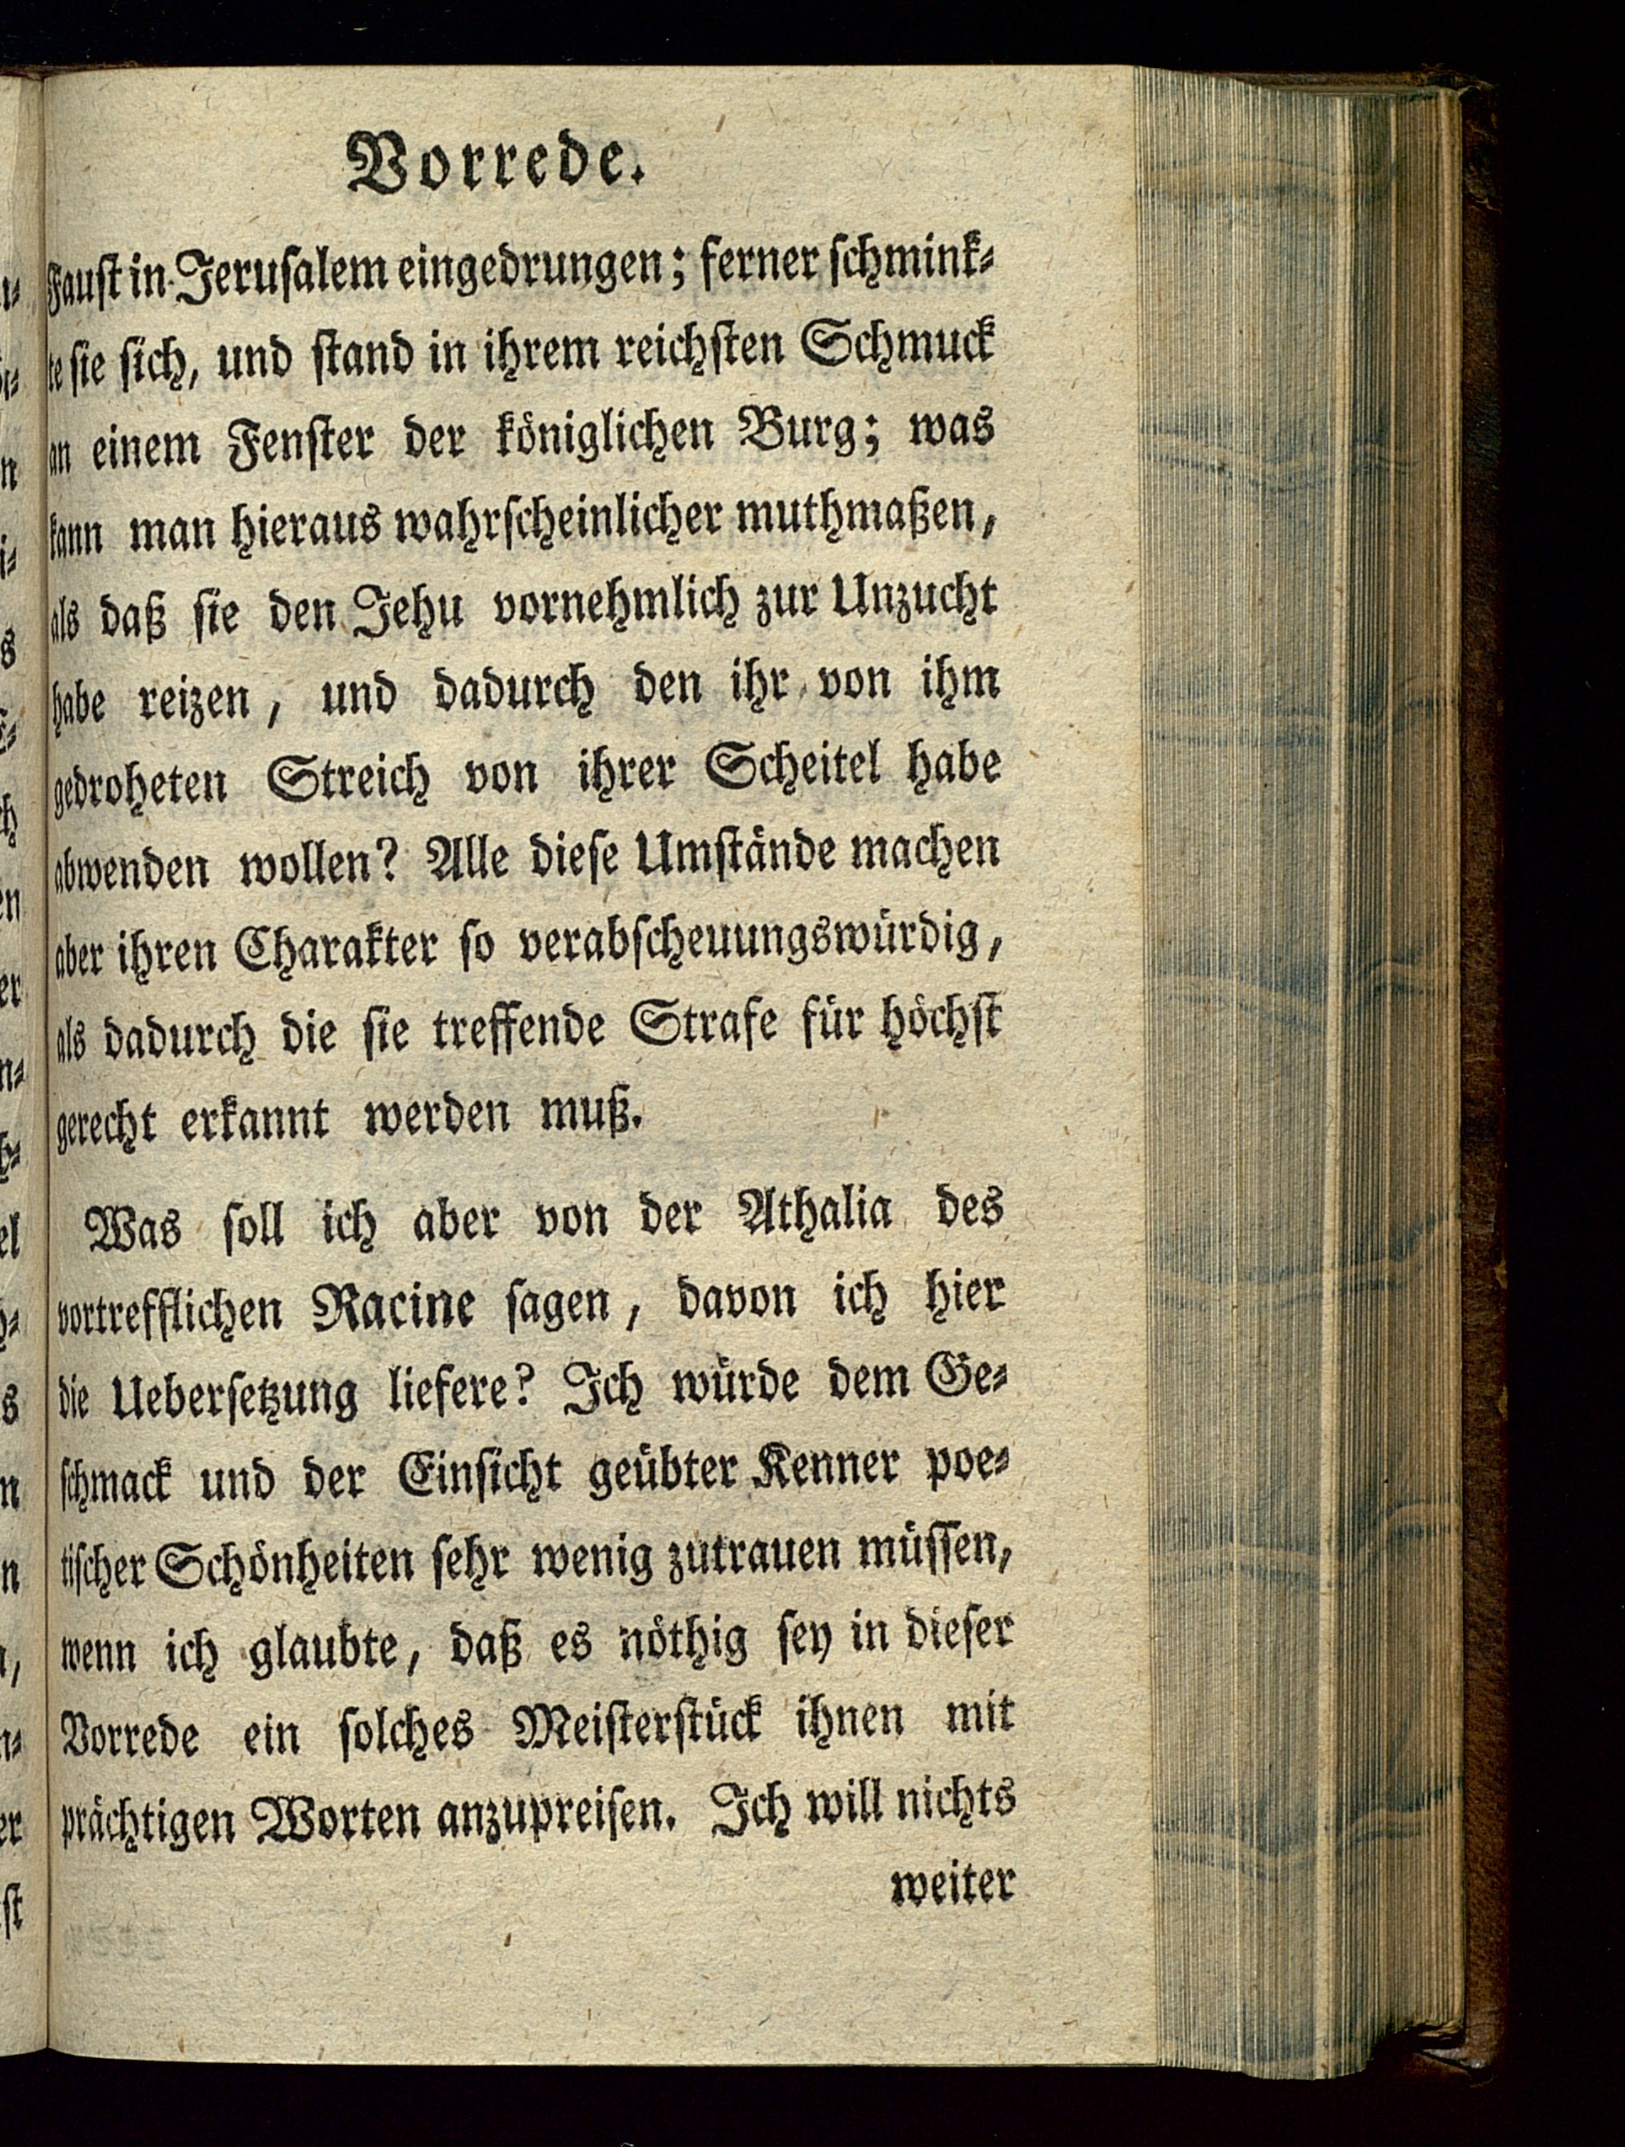 Vorrede.
Faust in Jerusalem eingedrungen; ferner schmink-
te sie sich, und stand in ihrem reichsten Schmuck
an einem Fenster der königlichen Burg; was
kann man hieraus wahrscheinlicher muthmaßen,
als daß sie den Jehu vornehmlich zur Unzucht
habe reizen, und dadurch den ihr von ihm
gedroheten Streich von ihrer Scheitel habe
abwenden wollen? Alle diese Umstände machen
aber ihren Charakter so verabscheuungswürdig,
als dadurch die sie treffende Strafe für höchst
gerecht erkannt werden muß.
Was soll ich aber von der Athalia des
vortrefflichen Racine sagen, davon ich hier
die Uebersetzung liefere? Ich würde dem Ge-
schmack und der Einsicht geübter Kenner poe-
tischer Schönheiten sehr wenig zutrauen müssen,
wenn ich glaubte, daß es nöthig sey in dieser
Vorrede ein solches Meisterstück ihnen mit
prächtigen Worten anzupreisen. Ich will nichts
weiter